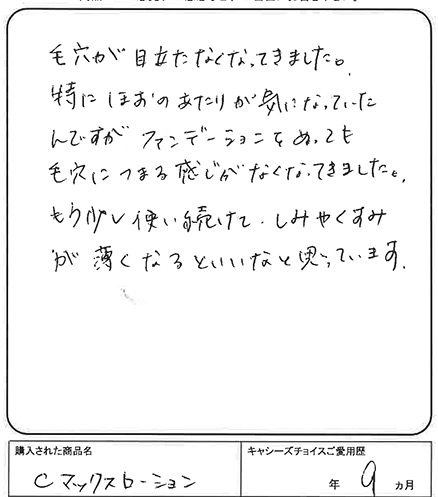 毛穴が目立たなくなってきました。
特にほおのあたりが気になっていた
んですが ファンデーションをぬっても
毛穴につまる感じがなくなってきました。
もう少し使い続けて、しみやくすみ
が薄くなるといいなと思っています。
購入された商品名
キャシーズチョイスご愛用歴
Cマックスローション
年 9 ヵ月